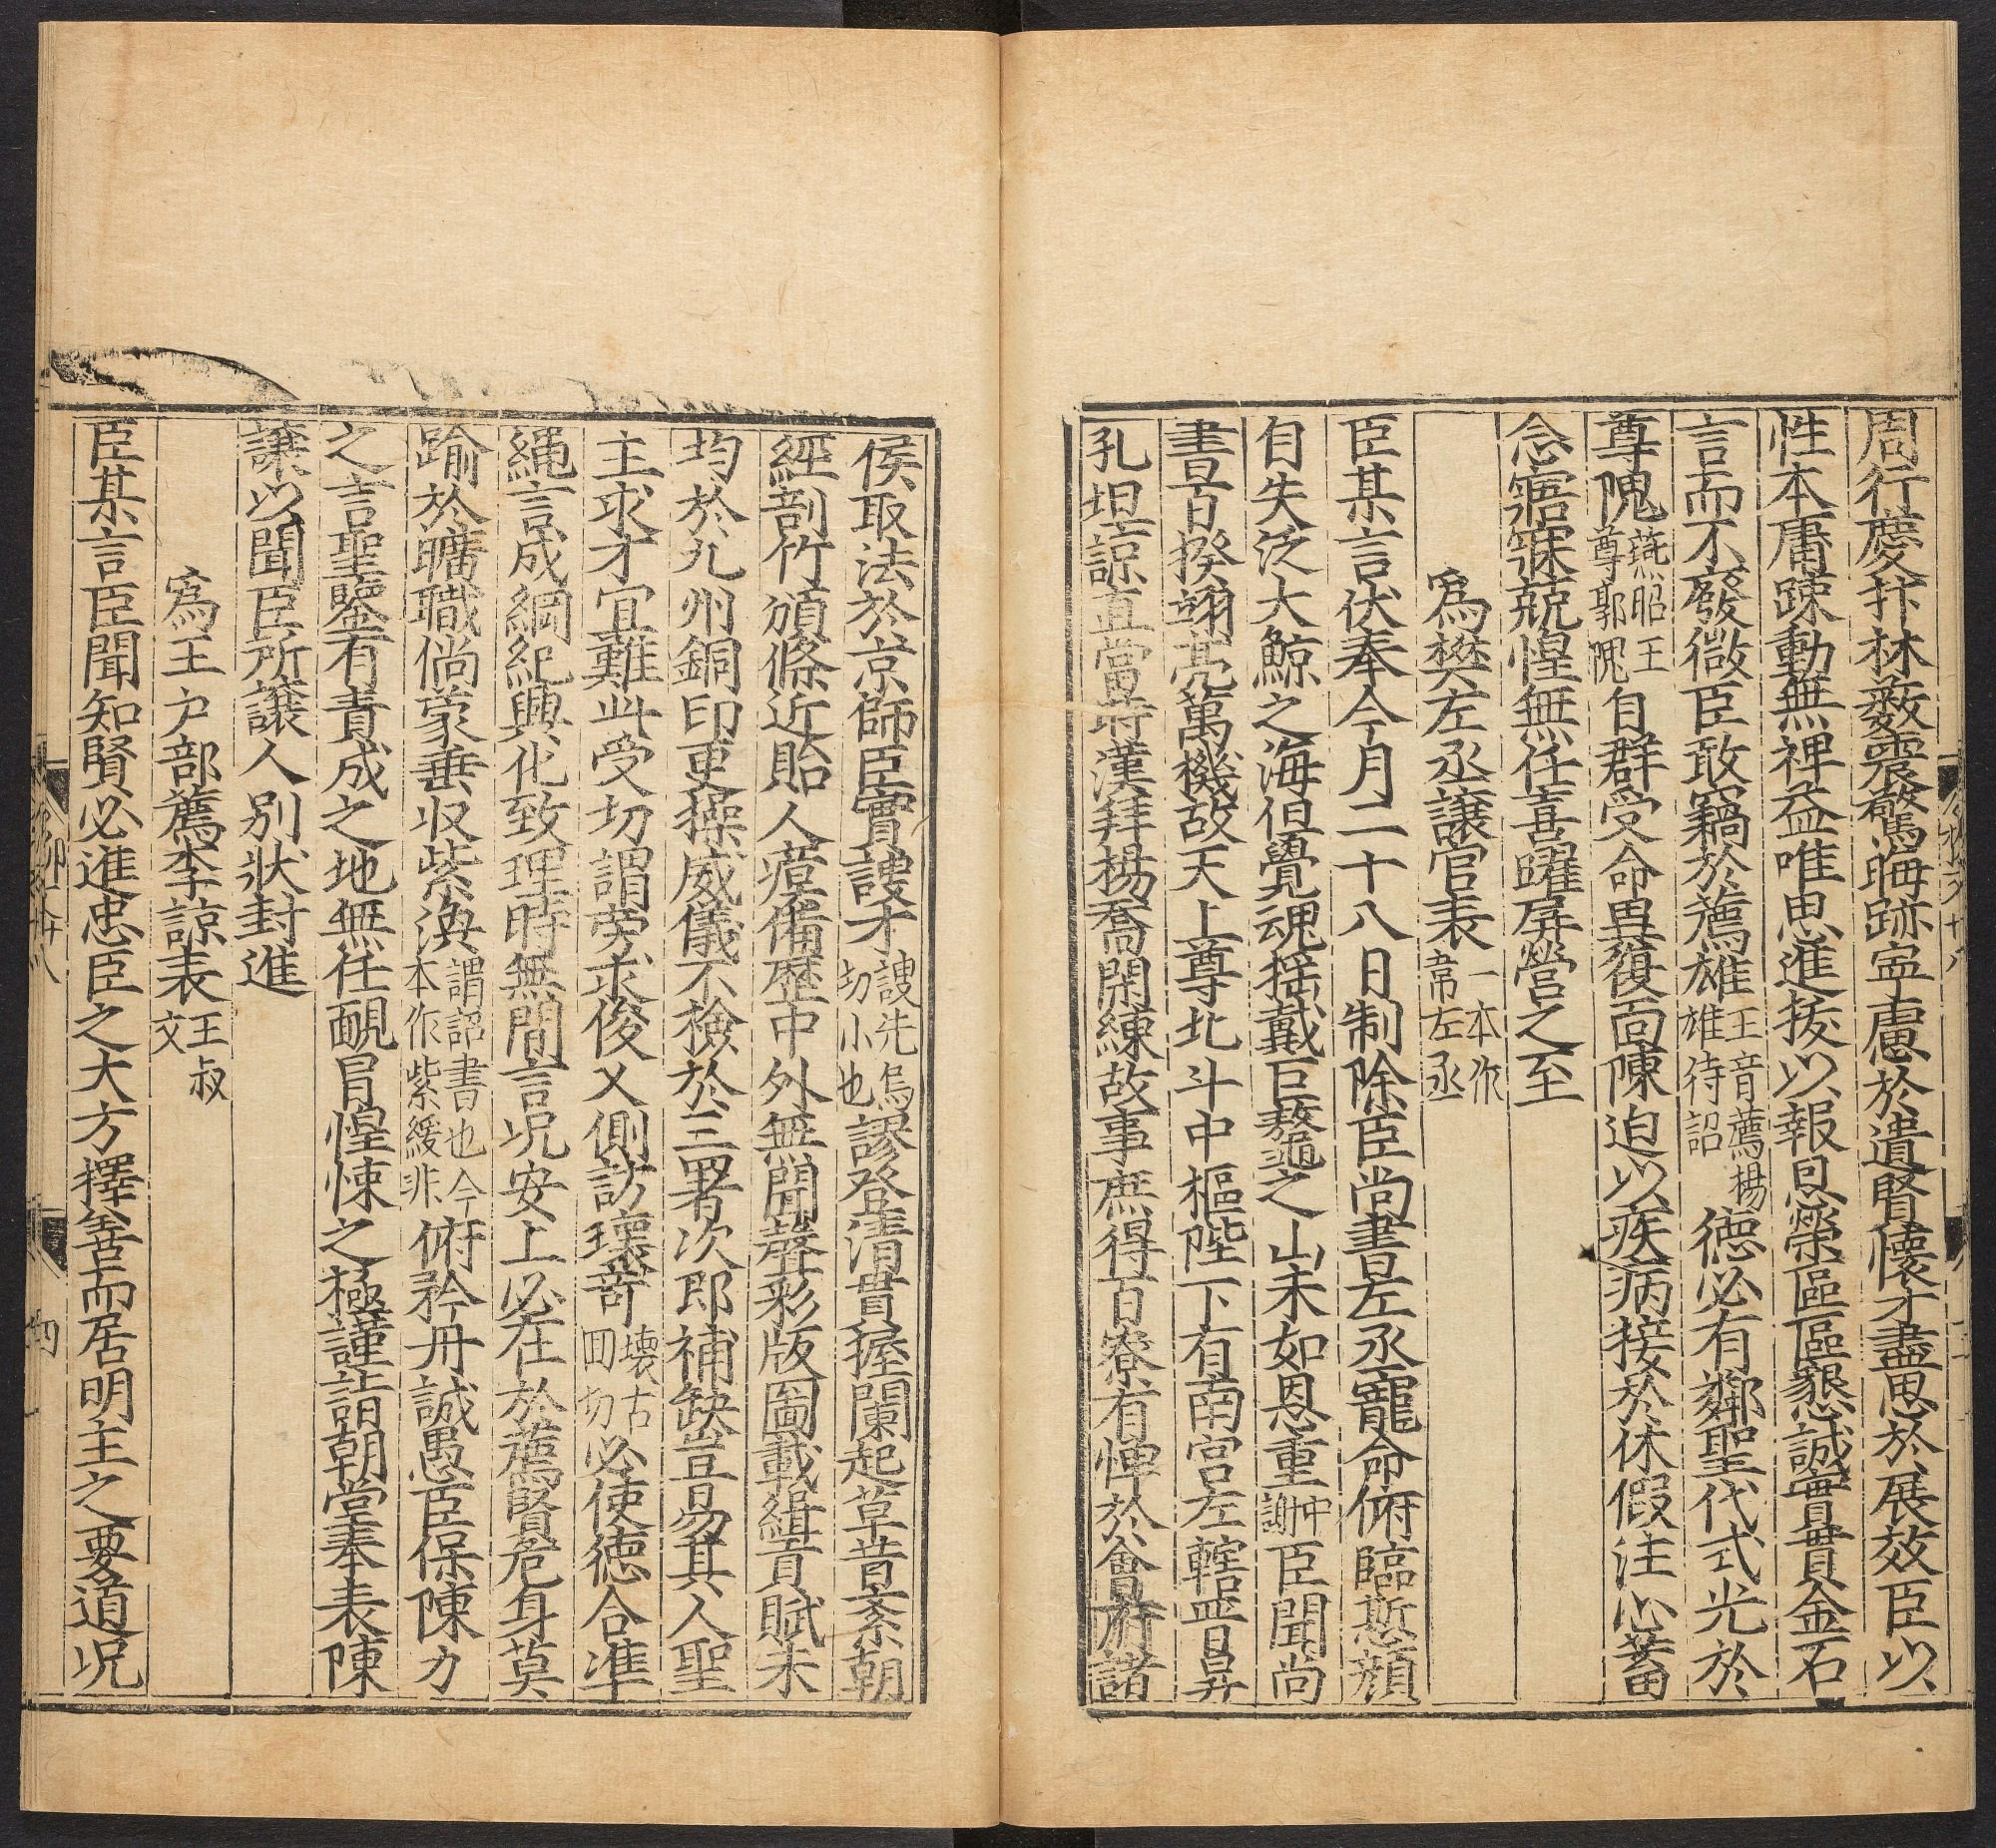 周行慶抃林藪震驚晦跡寧慮於遺賢懷才盡思於展效臣以
性本庸踈動無裨益唯思進拔以報恩榮區區懇誠實貫金石
言而不廢微臣敢竊於薦雄王音薦楊雄待詔德必有鄰聖代式光於
尊隗燕昭王尊郭隗自群受命異復面陳迫以疾病接於休假注心蓄
念寤寐兢惶無任喜躍屏營之至
爲樊左丞讓官表一本作常左丞
臣某言伏奉今月二十八日制除臣尚書左丞寵命俯臨慙顔
自失泛大鯨之海但覺魂摇戴巨鼇之山未如恩重中謝臣聞尚
書百揆翊亮萬機故天上尊北斗中樞陛下有南宮左轄晋昇
孔坦諒直當時漢拜楊喬閑練故事庶得百寮有憚於會府諸
侯取法於京師臣實謏才謏先烏切小也謬登清貫握蘭起草昔紊朝
經剖竹頒條近貽人瘼備歷中外無聞聲彩版圖載緝貢賦未
均於九州銅印更操威儀不檢於三署次郎補缺豈易其人聖
主求才宜難此受切謂旁求俊乂側訪瓌奇瓌古回切必使德合準
繩言成綱紀興化致理時無間言况安上必在於薦賢危身莫
踰於曠職倘蒙垂収紫渙謂詔書也今本作紫緩非俯矜丹誠愚臣保陳力
之言聖鑒有責成之地無任靦冒惶悚之極謹詣朝堂奉表陳
讓以聞臣所讓人别狀封進
爲王户部薦李諒表王叔文
臣某言臣聞知賢必進忠臣之大方擇善而居明主之要道况
四